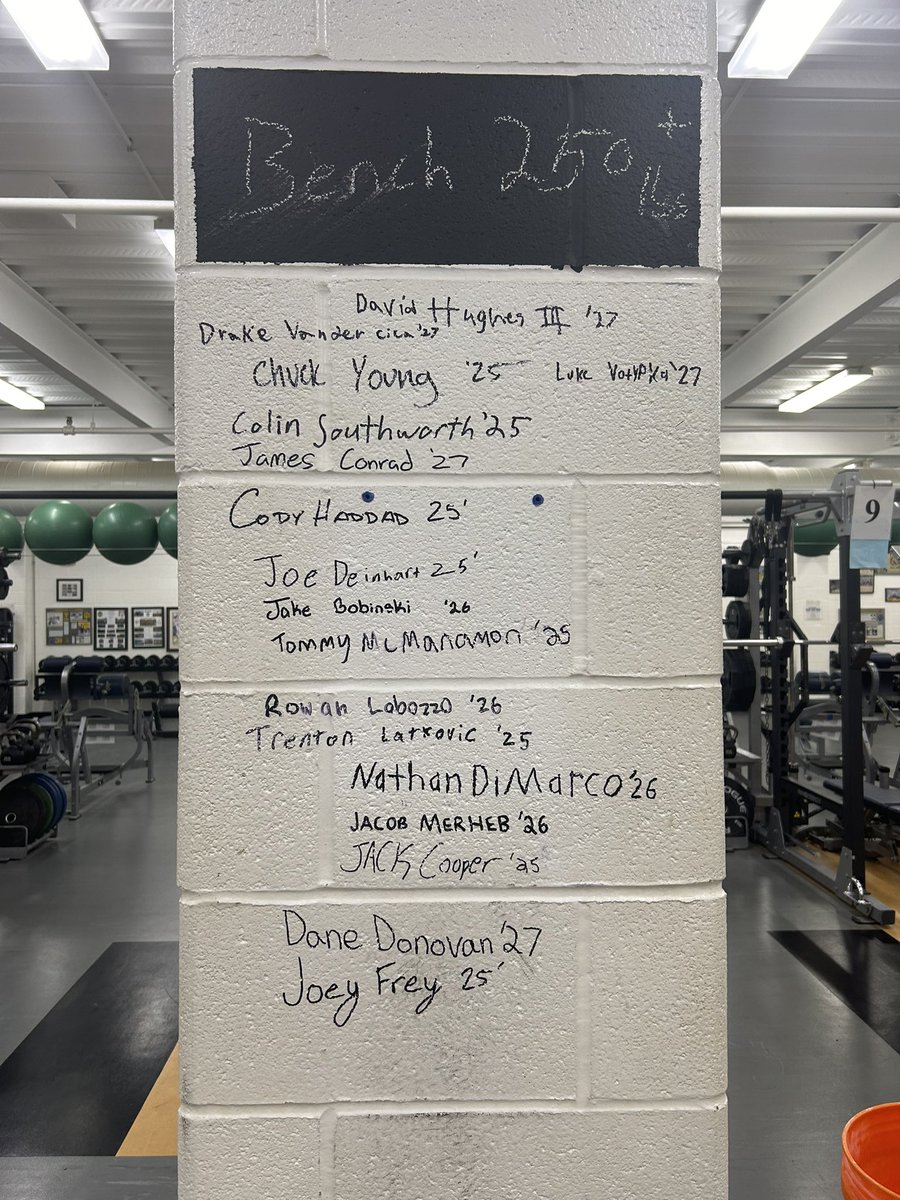 Bench 250+ lbs
David Hughes III '27
Drake Vander cica '27
Chuck Young '25
Luke '27
Colin Southworth '25
James Conrad '27
Cody Haddad 25'
9
Joe Deinhart 25'
Jake Bobinski '26
Tommy McManamon '25
Rowan Lobozzo '26
Trenton Latkovic '25
Nathan DiMarco '26
JACOB MERHEB '26
JACK Cooper '25
Dane Donovan '27
Joey Frey 25'